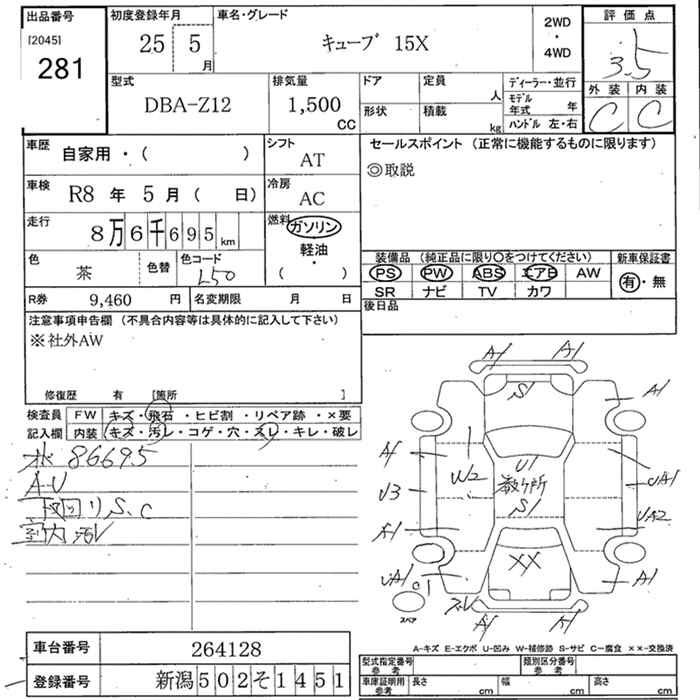 出品番号 初度登録年月 車名・グレード 2WD・4WD 評価点
[2045] 281 25 5月 キューブ 15X 3.5
外装 内装
C C
型式 排気量 ドア 定員 人 ディーラー・並行
DBA-Z12 1,500 CC 形状 積載 kg モデル年式 年
ハンドル 左・右
車歴 自家用・( ) シフト AT
セールスポイント (正常に機能するものに限ります)
◎取説
車検 R8年 5月 ( 日) 冷房 AC
走行 8万6千695km 燃料 ガソリン
軽油
・
( )
色 茶 色替 色コード L50
装備品 (純正品に限り○をつけてください) 新車保証書
PS PW ABS エアB AW 有・無
SR ナビ TV カワ
R券 9,460 円 名変期限 月 日
後日品
注意事項申告欄 (不具合内容等は具体的に記入して下さい)
※社外AW
修復歴 有 [箇所 ]
検査員 FW キズ・飛石・ヒビ割・リペア跡・×要
記入欄 内装 キズ・汚レ・コゲ・穴・スレ・キレ・破レ
86695
A-U
下回リS、C
室内汚レ
A1 A1
S1
A1
U1
W2
U3
数ヶ所
S1
UA1
UA2
A1
XX
UA1
C1
A1
スペア
A-キズ E-エクボ U-凹み W-補修跡 S-サビ C-腐食 ××-交換済
車台番号 264128
登録番号 新潟502そ1451
型式指定番号 参考 類別区分番号 参考
車庫証明用 参考 長さ cm 幅 cm 高さ cm